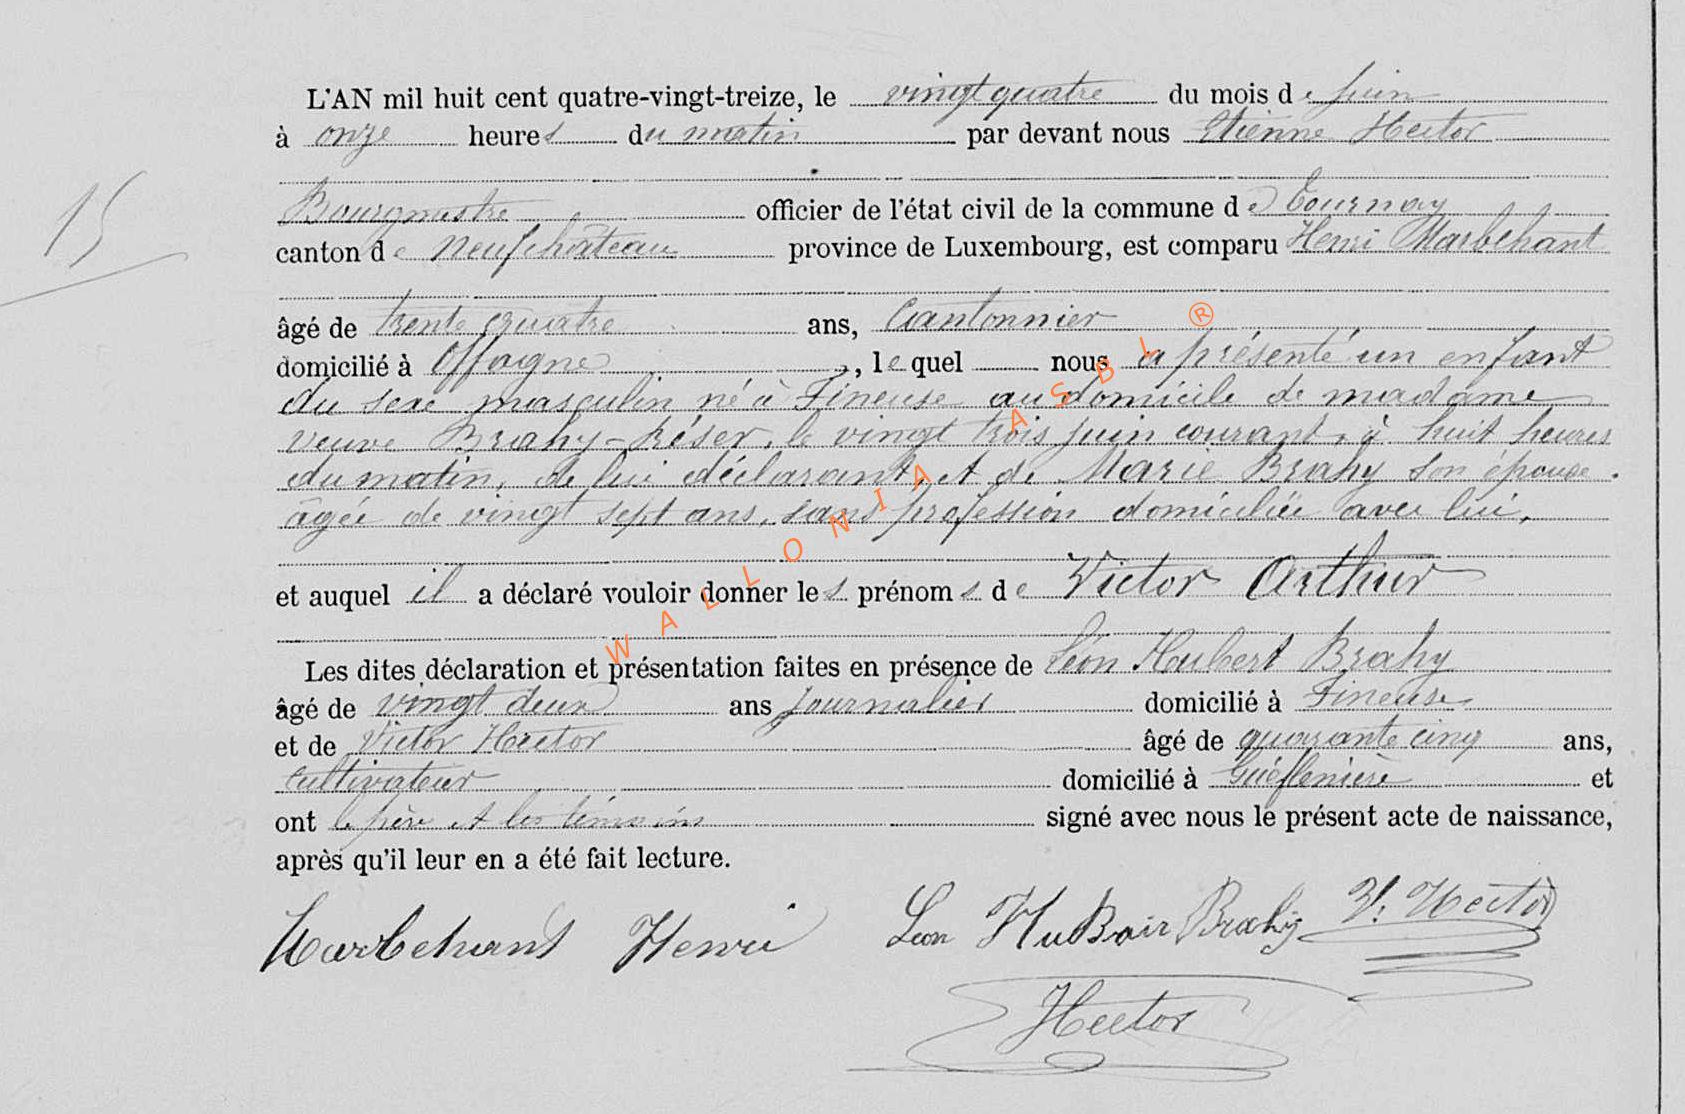 L'AN mil huit cent quatre-vingt-treize, le vingt quatre du mois de Juin
à onze heures du matin par devant nous Etienne Hector
Bourgmestre officier de l'état civil de la commune de Tournay
15
canton de Neufchâteau province de Luxembourg, est comparu Henri Marbehant
âgé de trente quatre ans, Cantonnier
domicilié à Offagne, lequel nous a présenté un enfant
du sexe masculin né à Fineuse au domicile de madame
veuve Brahy-Réser, le vingt trois juin courant, à huit heures
du matin, de lui déclarant, et de Marie Brahy son épouse.
âgée de vingt sept ans, sans profession domiciliée avec lui,
et auquel il a déclaré vouloir donner les prénoms de Victor Arthur
Les dites déclaration et présentation faites en présence de Léon Hubert Brahy
âgé de vingt deux ans journalier domicilié à Fineuse
et de Victor Hector âgé de quarante cinq ans,
cultivateur domicilié à et
ont le père et les témoins signé avec nous le présent acte de naissance,
après qu'il leur en a été fait lecture.
Marbehant Henri Léon HuBair Brahy V. Hector
Hector
WALLONIA ASBL ®